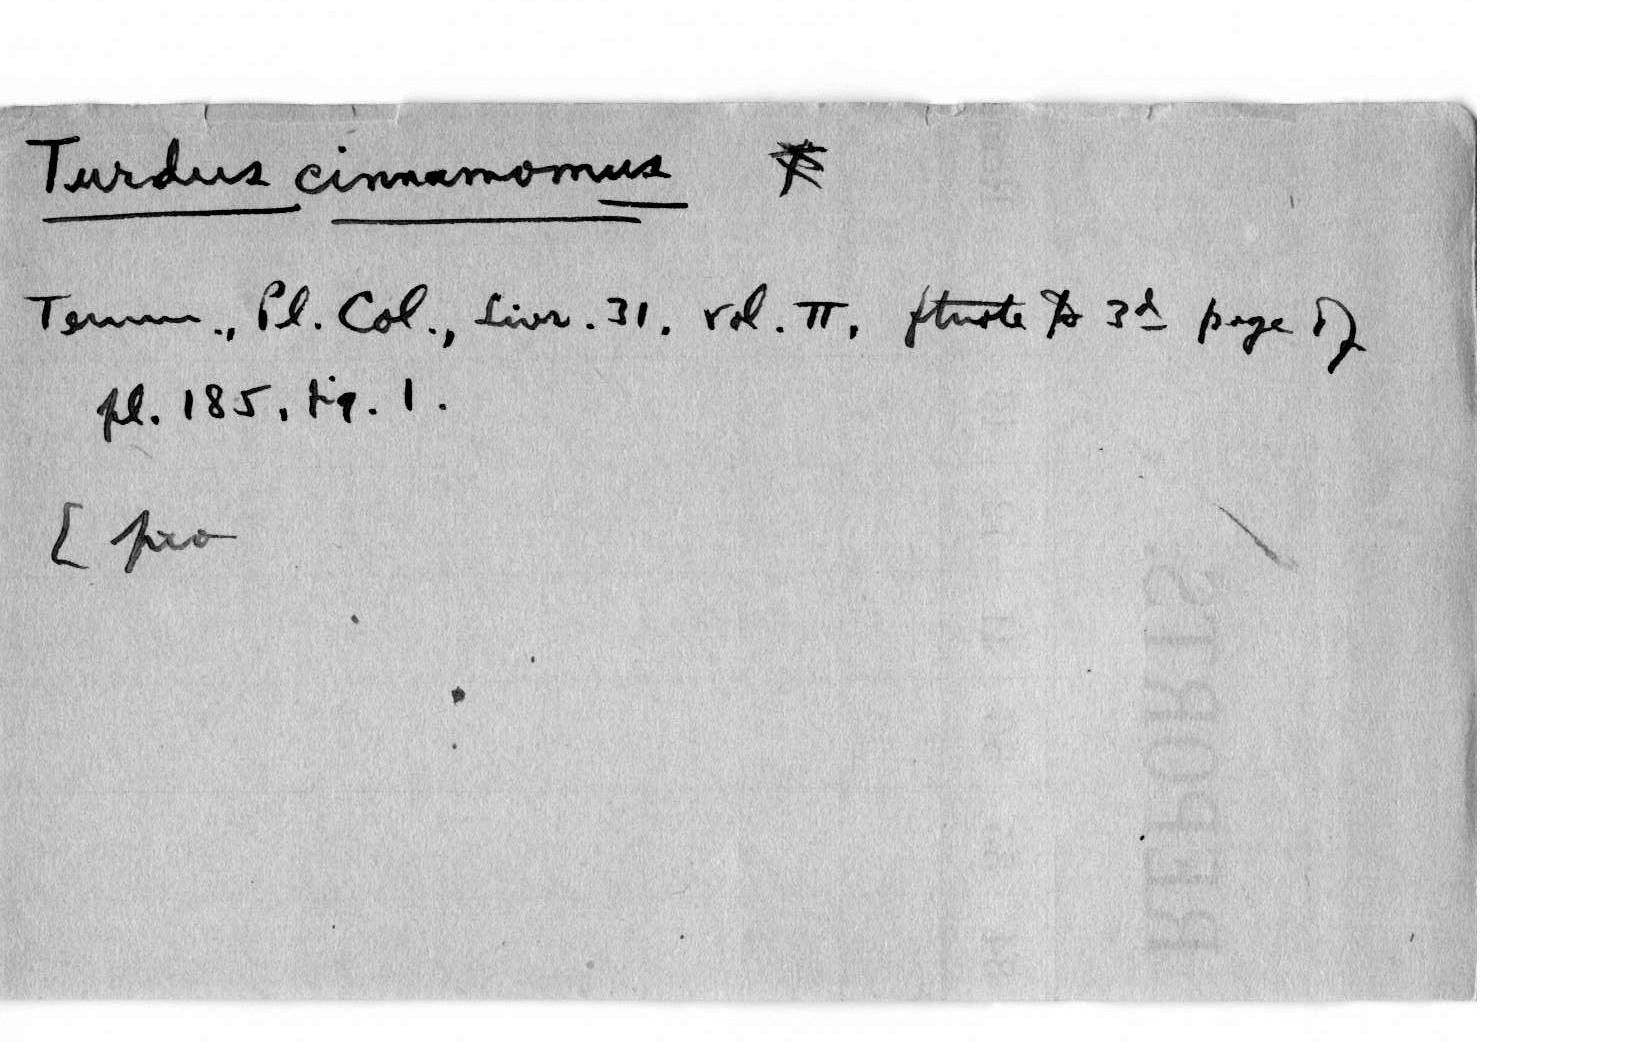 Turdus cinnamomus *
Temm., Pl. Col., Livr. 31. vol. II, ftnote to 3d page of
pl. 185, fig. 1.
[
REPORTS